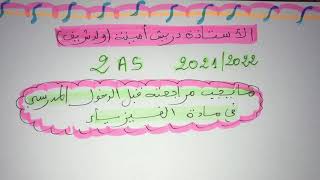 الأستاذة دريش أمينة (ولد شريف)
2AS 2021/2022
ما يجب مراجعته قبل الدخول المدرسي
في مادة الفيزياء